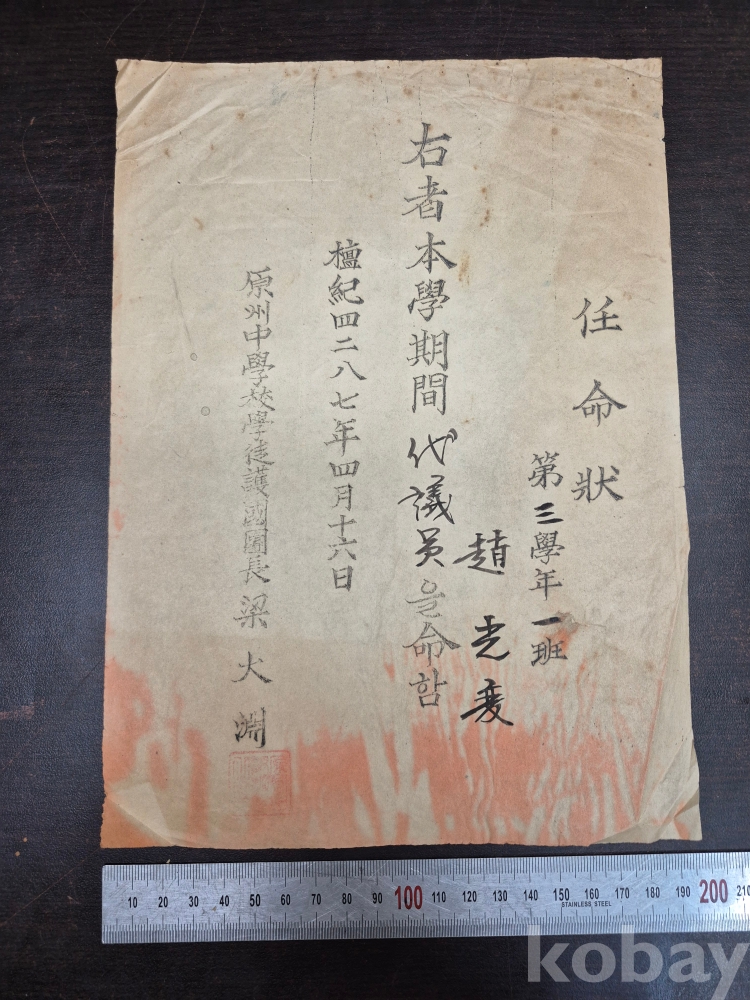 任命狀
第三學年一班
趙光
右者本學期間代議員을命함
檀紀四二八七年四月十六日
原州中學校學徒護國團長梁大淵
10 20 30 40 50 60 70 80 90 100 110 120 130 140 150 160 170 180 190 200 210
STAINLESS STEEL
kobay